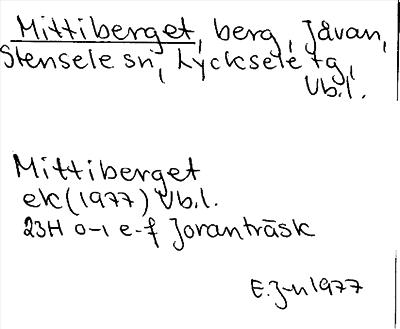 Mittiberget, berg, Jåvan,
Stensele sn, Lycksele tg,
Vb.l.
Mittiberget
ek (1977) Vb.l.
23H 0-1 e-f Joranträsk
E. J-n 1977